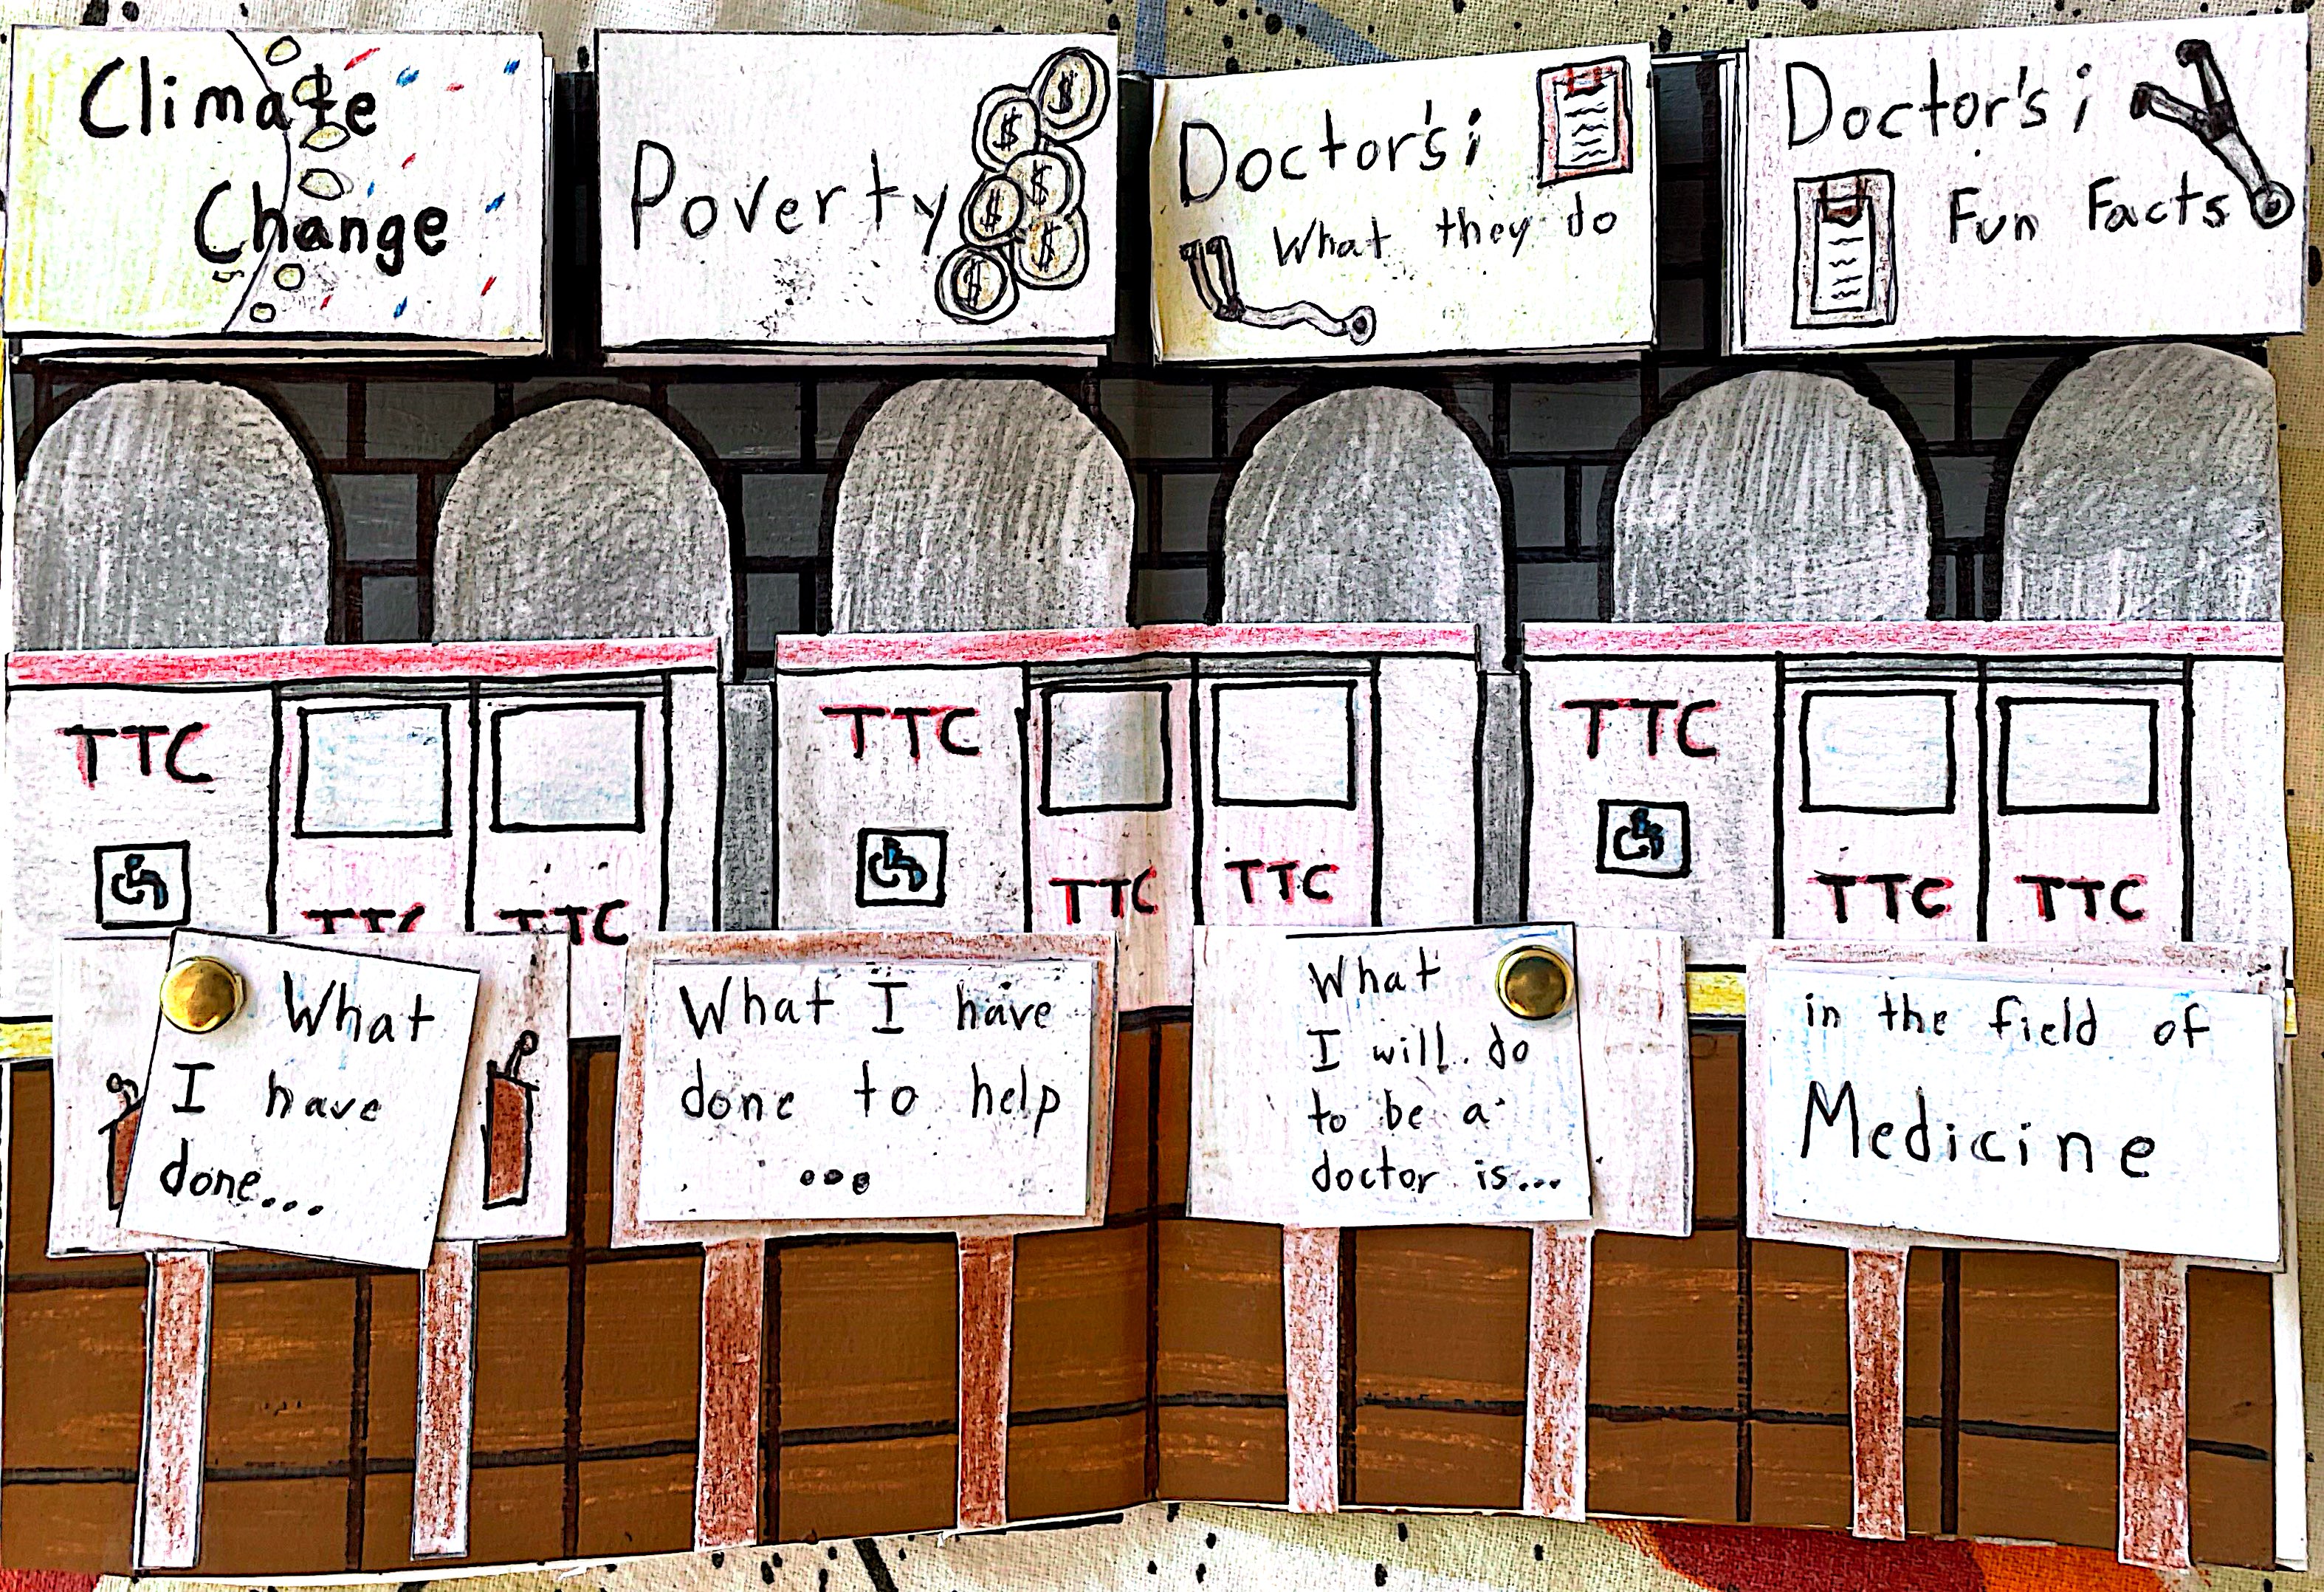 Climate
Change
Poverty
$
$
$
$
$
$
Doctor's i
What they do
Doctor's i
Fun Facts
TTC
TTC
TTC
TTC
TTC
TTC
TTC
TTC
TTC
What
I have
done...
What I have
done to help
...
What
I will do
to be a
doctor is...
in the field of
Medicine